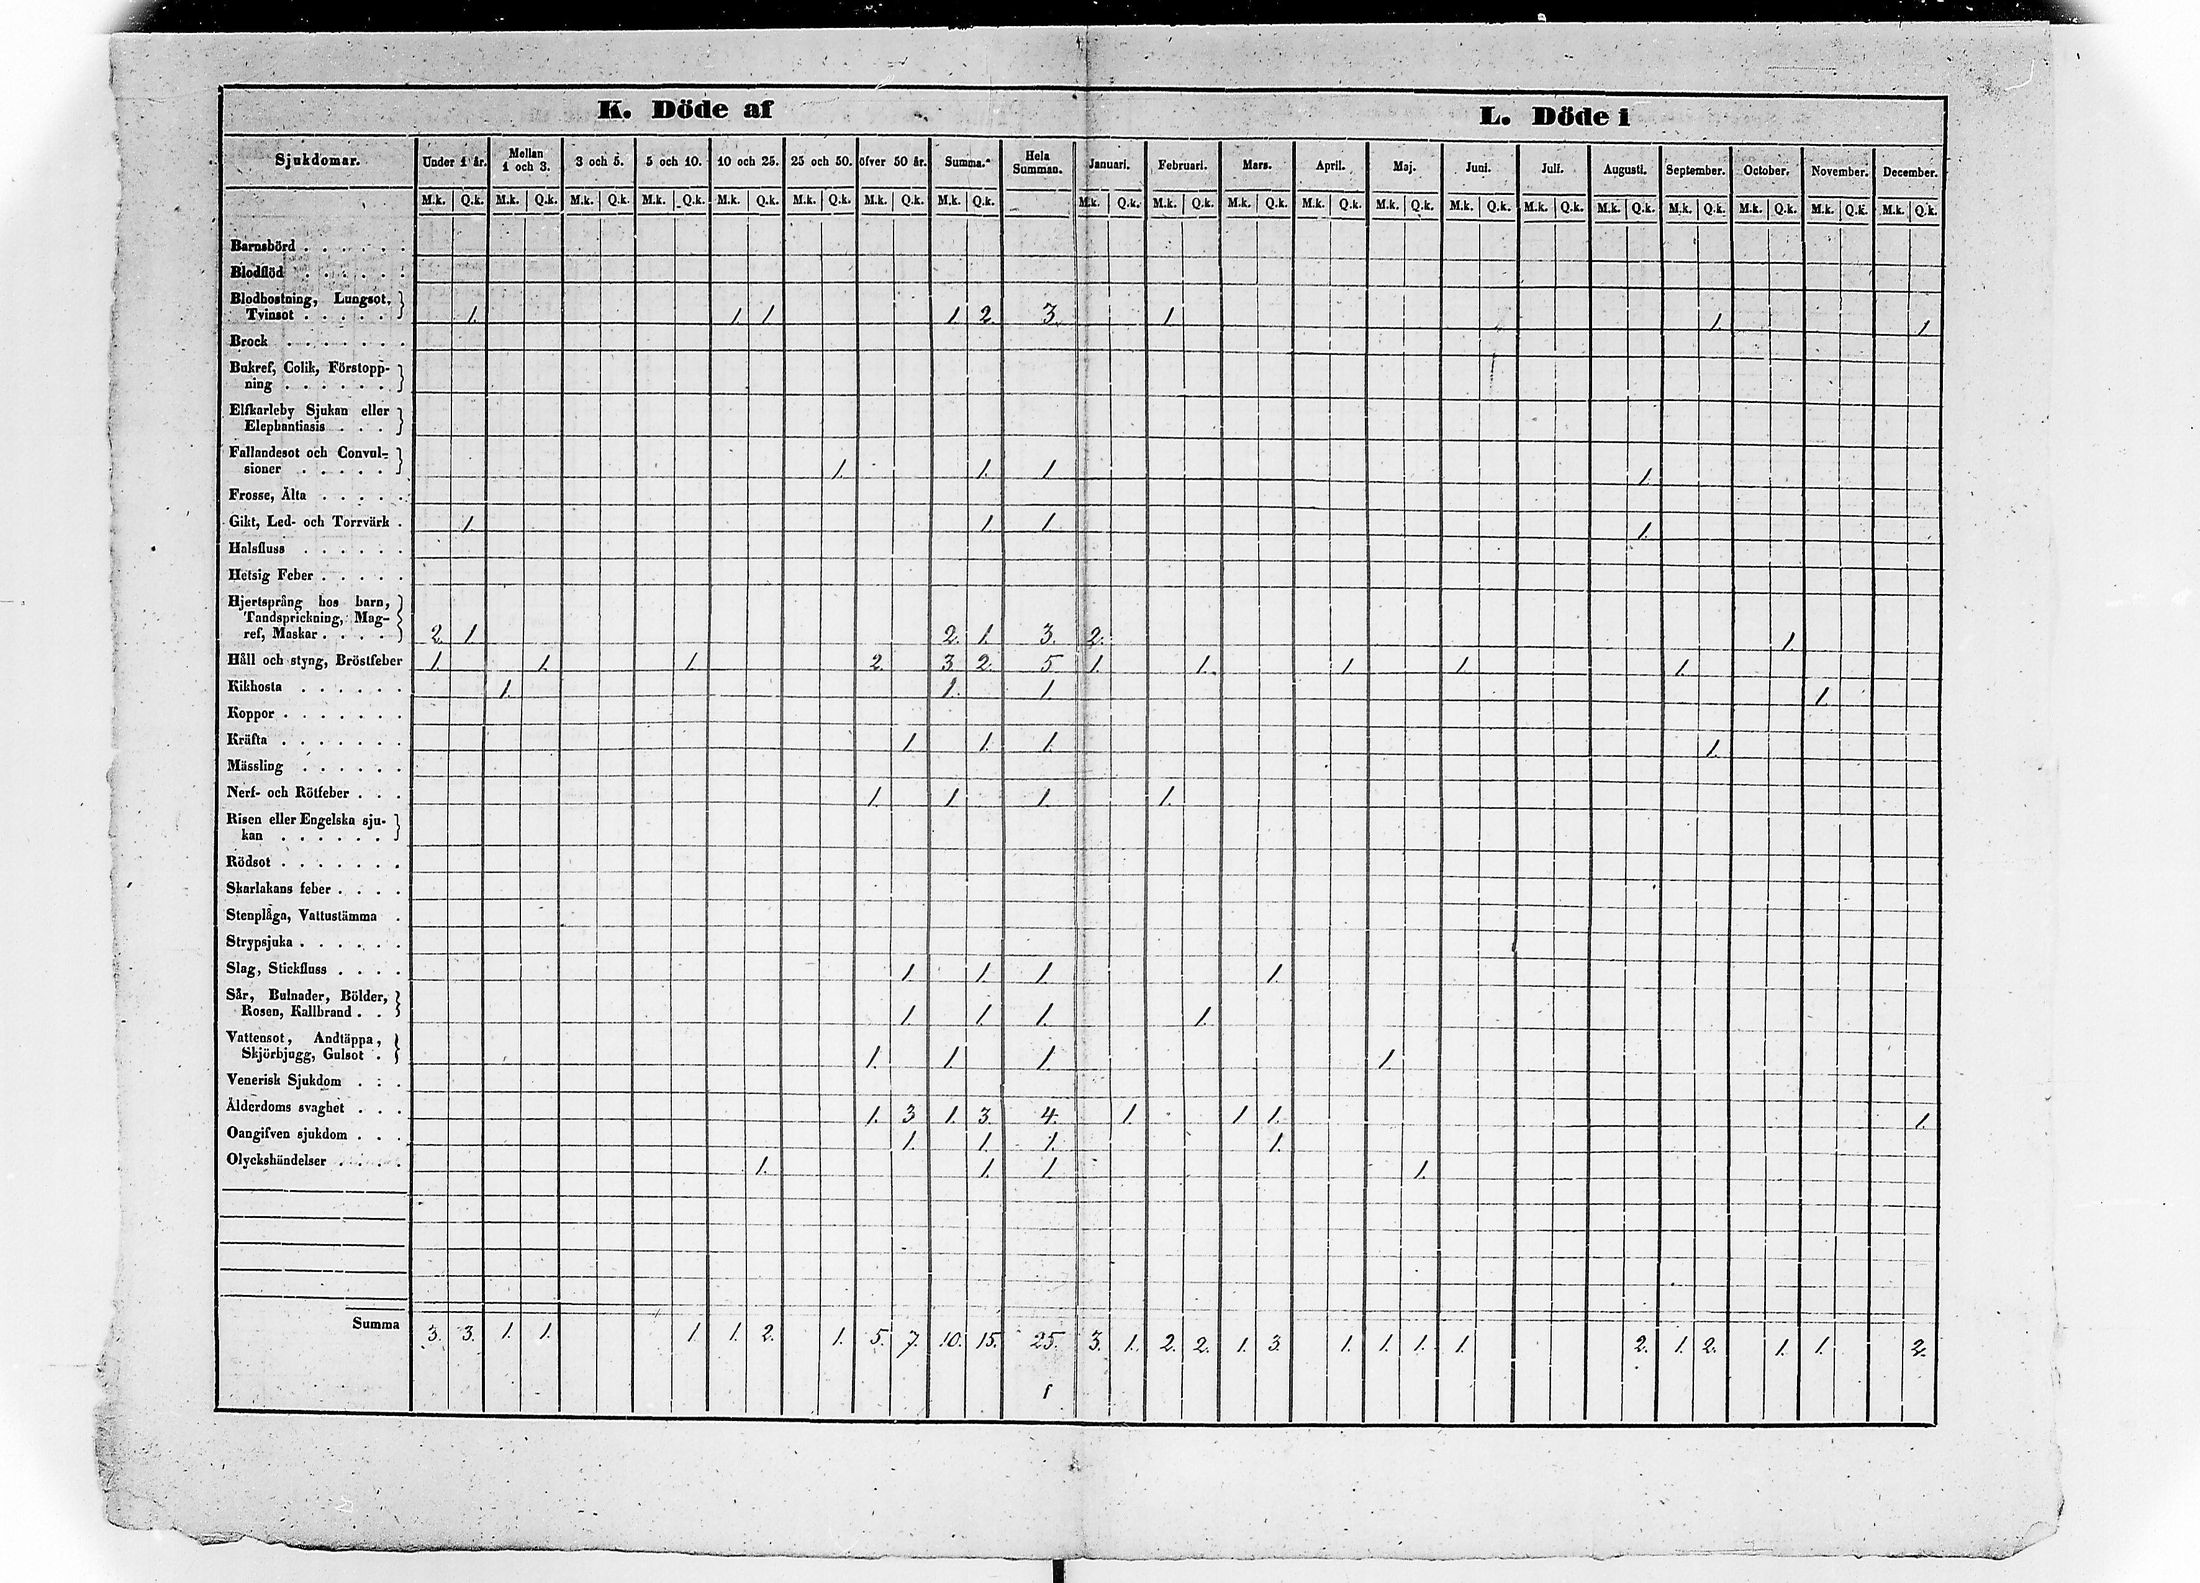 K. Döde af L. Döde i
Sjukdomar. Under 1 år. Mellan 1 och 3. 3 och 5. 5 och 10. 10 och 25. 25 och 50. öfver 50 år. Summa. Hela Summan. Januari. Februari. Mars. April. Maj. Juni. Juli. Augusti. September. October. November. December.
M.k. Q.k. M.k. Q.k. M.k. Q.k. M.k. Q.k. M.k. Q.k. M.k. Q.k. M.k. Q.k. M.k. Q.k. M.k. Q.k. M.k. Q.k. M.k. Q.k. M.k. Q.k. M.k. Q.k. M.k. Q.k. M.k. Q.k. M.k. Q.k. M.k. Q.k. M.k. Q.k. M.k. Q.k. M.k. Q.k.
Barnsbörd . . . . . .
Blodflöd . . . . . .
Blodhostning, Lungsot,
Tvinsot . . . . . 1. 1. 1 1. 2. 3. 1. 1. 1.
Brock . . . . . . .
Bukref, Colik, Förstopp-
ning . . . . . .
Elfkarleby Sjukan eller
Elephantiasis . . .
Fallandesot och Convul-
sioner . . . . . 1. 1. 1 1.
Frosse, Älta . . . . .
Gikt, Led- och Torrvärk . 1. 1. 1. 1.
Halsfluss . . . . . .
Hetsig Feber . . . . .
Hjertsprång hos barn,
Tandsprickning, Mag-
ref, Maskar . . . . 2. 1. 2. 1. 3. 2. 1.
Håll och styng, Bröstfeber 1. 1. 1. 2. 3. 2. 5 1. 1. 1. 1. 1.
Kikhosta . . . . . . 1. 1. 1 1.
Koppor . . . . . . .
Kräfta . . . . . . . 1 1. 1. 1.
Mässling . . . . . .
Nerf- och Rötfeber . . . 1 1 1 1.
Risen eller Engelska sju-
kan . . . . . .
Rödsot . . . . . . .
Skarlakans feber . . . .
Stenplåga, Vattustämma .
Strypsjuka . . . . . .
Slag, Stickfluss . . . . 1. 1. 1. 1.
Sår, Bulnader, Bölder,
Rosen, Kallbrand . . 1. 1. 1. 1.
Vattensot, Andtäppa,
Skjörbjugg, Gulsot . 1. 1. 1. 1.
Venerisk Sjukdom . . .
Ålderdoms svaghet . . . 1. 3 1. 3. 4. 1. 1 1. 1.
Oangifven sjukdom . . . 1. 1. 1. 1.
Olyckshändelser . . . . 1. 1. 1. 1.
Summa 3. 3. 1. 1. 1 1. 2. 1. 5. 7. 10. 15. 25. 3. 1. 2. 2. 1. 3. 1. 1. 1. 1. 2. 1. 2. 1. 1. 2.